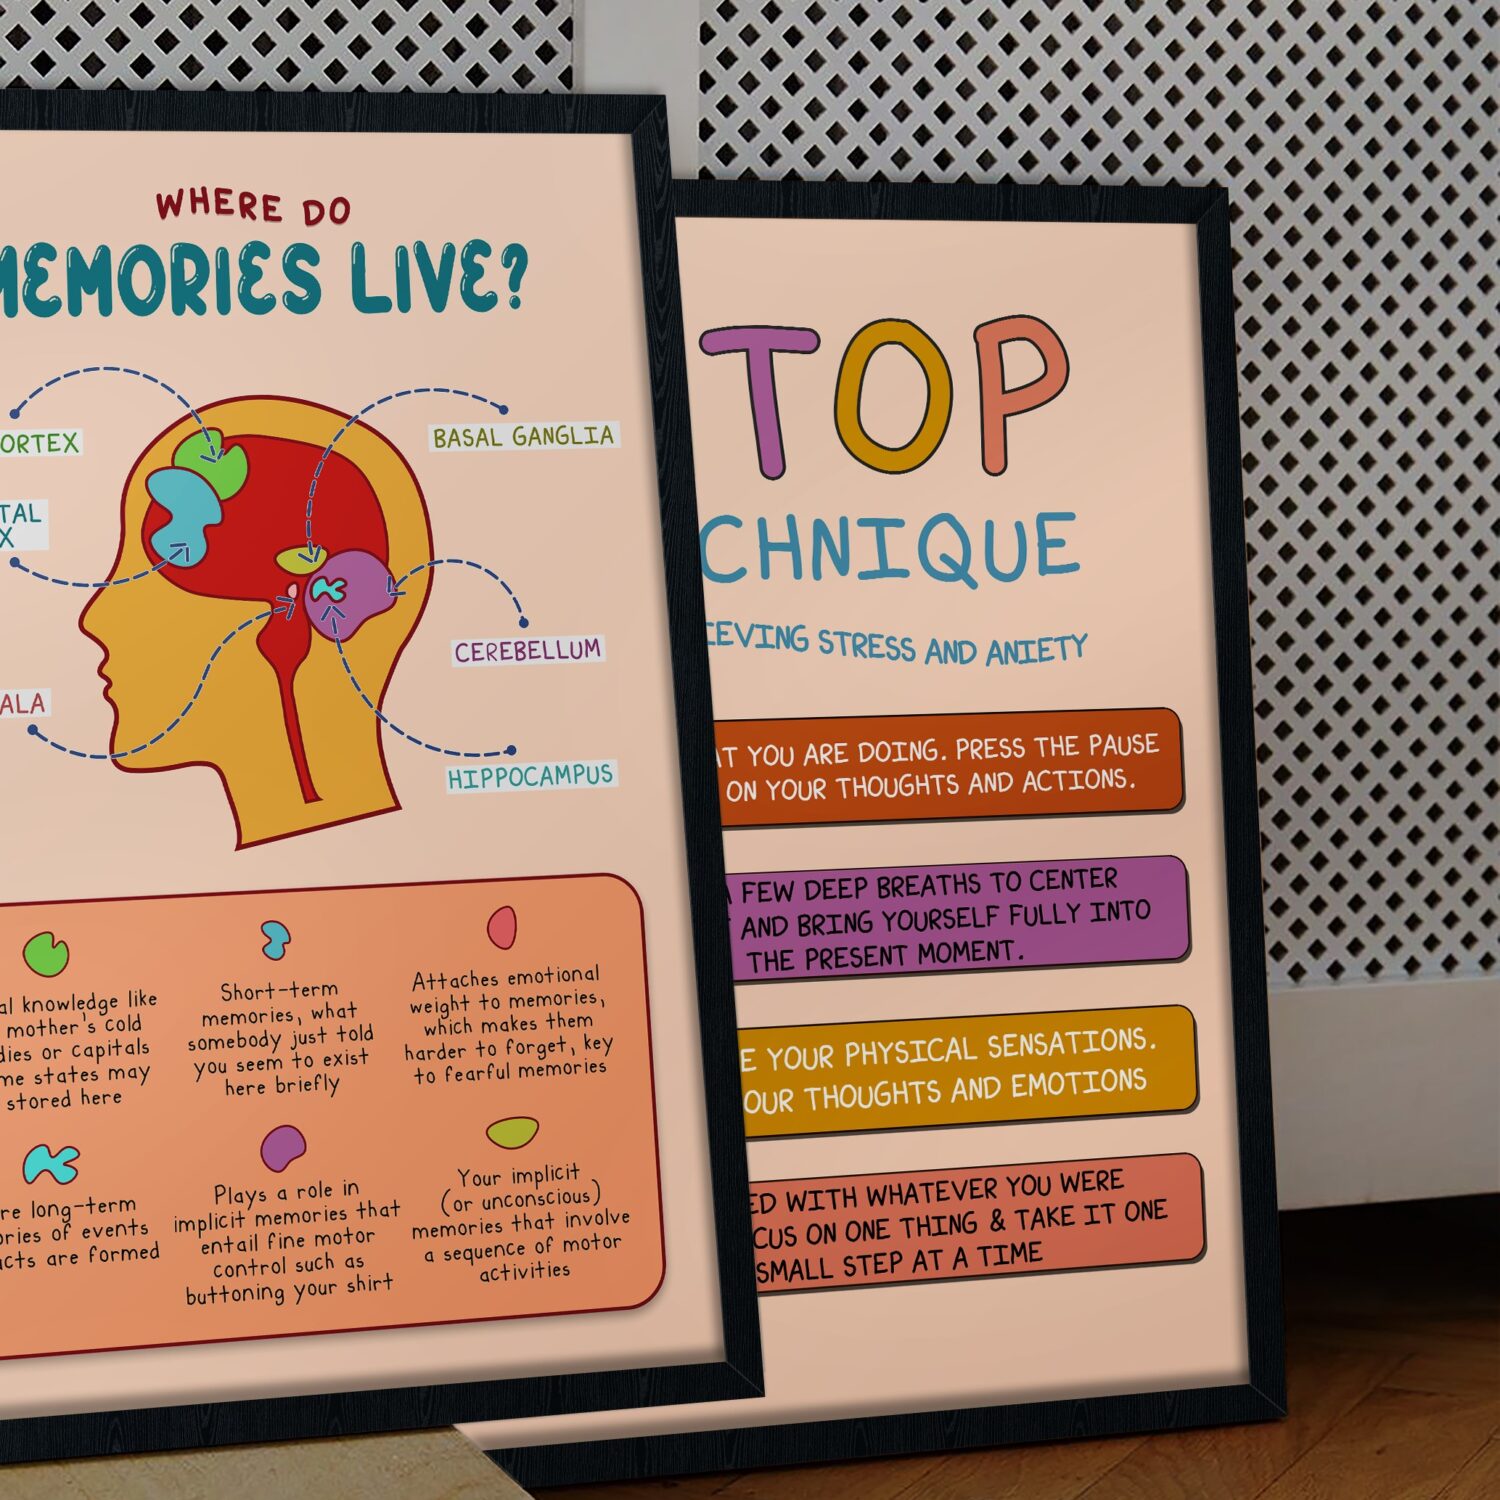 WHERE DO
MEMORIES LIVE?
BASAL GANGLIA
CEREBELLUM
HIPPOCAMPUS
knowledge like
mother's cold
or capitals
states may
stored here
Short-term
memories, what
somebody just told
you seem to exist
here briefly
Attaches emotional
weight to memories,
which makes them
harder to forget, key
to fearful memories
long-term
of events
are formed
Plays a role in
implicit memories that
entail fine motor
control such as
buttoning your shirt
Your implicit
(or unconscious)
memories that involve
a sequence of motor
activities
TOP
CHNIQUE
IEVING STRESS AND ANIETY
YOU ARE DOING. PRESS THE PAUSE
ON YOUR THOUGHTS AND ACTIONS.
FEW DEEP BREATHS TO CENTER
AND BRING YOURSELF FULLY INTO
THE PRESENT MOMENT.
YOUR PHYSICAL SENSATIONS.
OUR THOUGHTS AND EMOTIONS
WITH WHATEVER YOU WERE
CUS ON ONE THING & TAKE IT ONE
SMALL STEP AT A TIME